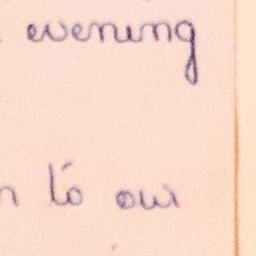 evening
to our